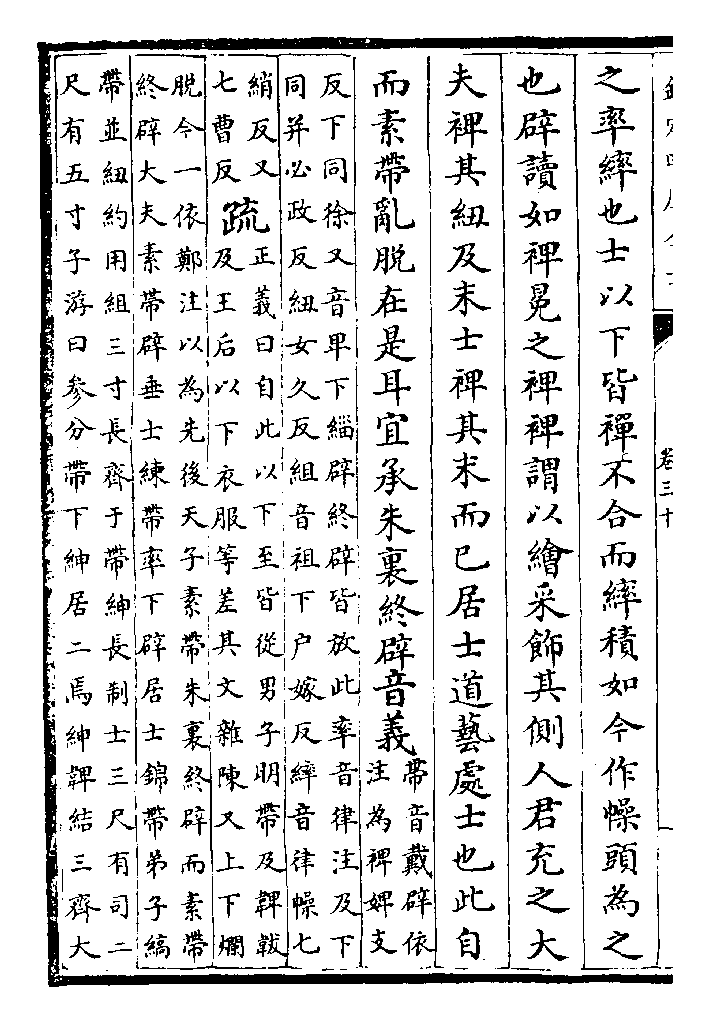 卷三十
之率繂也士以下皆襌不合而繂積如今作幧頭為之
也辟讀如裨冕之裨裨謂以繒采飾其側人君充之大
夫裨其紐及末士裨其末而已居士道藝處士也此自
而素帶亂脱在是耳宜承朱裏終辟音義
帶音戴辟依
注為裨婢支
反下同徐又音卑下緇辟終辟皆放此率音律注及下
同并必政反紐女久反組音祖下户嫁反繂音律幧七
綃反又
七曹反
疏
正義曰自此以下至皆從男子明帶及韠韍
及王后以下衣服等差其文雜陳又上下爛
脱今一依鄭注以為先後天子素帶朱裏終辟而素帶
終辟大夫素帶辟垂士練帶率下辟居士錦帶弟子縞
帶並紐約用組三寸長齊于帶紳長制士三尺有司二
尺有五寸子游曰參分帶下紳居二焉紳韠結三齊大